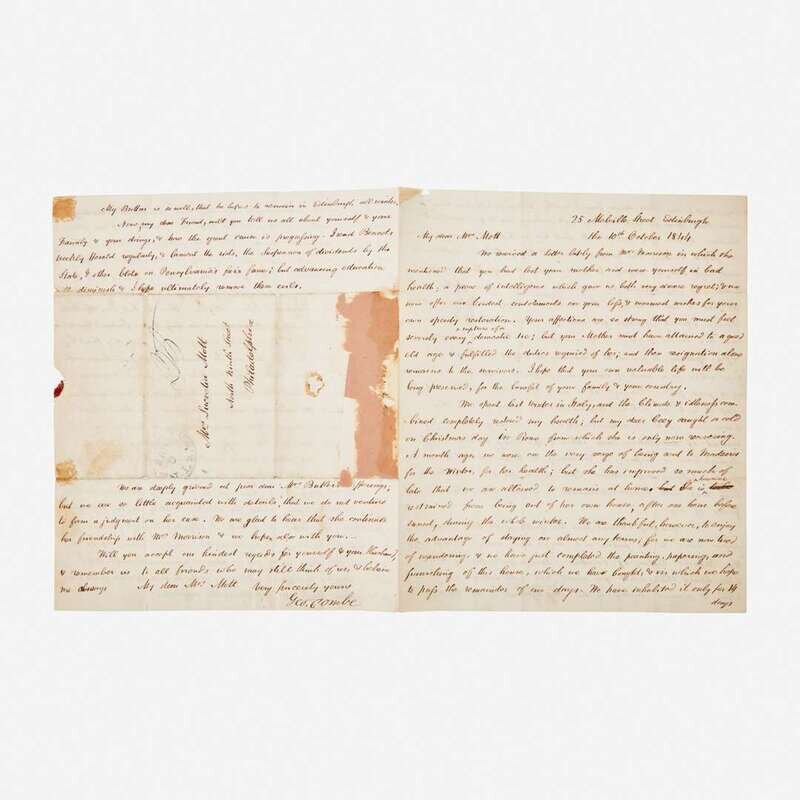 25 Melville Street Edinburgh
the 10th October 1844
My dear Mrs Mott
We received a letter lately from Mrs Morrison in which she
mentioned that you had lost your mother and were yourself in bad
health, a piece of intelligence which gave us both my sincere regret; & we
now offer our cordial condolements on your loss, & warmest wishes for your
own speedy restoration. Your affections are so strong that you must feel
severely every rupture of a domestic tie; but your Mother must have attained to a good
old age & fulfilled the duties required of her; and then resignation alone
remains to the survivors. I hope that your own valuable life will be
long preserved, for the benefit of your family, & your country.
We spent last winter in Italy, and the Climate & idleness com-
bined completely restored my health; but my dear Cecy caught a cold
on Christmas day in Rome from which she is only now recovering.
A month ago, we were on the very verge of going out to Madeira
for the Winter, for her health; but she has improved so much of
late that we are allowed to remain at home, but She is however
restrained from being out of her own house, after one hour before
sunset, during the whole winter. We are thankful, however, to enjoy
the advantage of staying on almost any terms; for we are now tired
of wandering, & we have just completed the painting, papering, and
furnishing of this house, which we have bought, & in which we hope
to pass the remainder of our days. We have inhabited it only for 14
days
My Brother is so well, that he hopes to remain in Edinburgh all winter.
Now, my dear Friend, will you tell us all about yourself & your
Family & your doings, & how the great cause is progressing. I read Bennets
Weekly Herald regularly, & lament the riots, the Suspension of dividends by the
State, & other blots on Pennsylvania's fair fame; but advancing education
& I hope ultimately remove these evils.
Mrs Lucretia Mott
North Ninth Street
Philadelphia
We are deeply grieved at poor dear Mrs Butler's sufferings,
but we are so little acquainted with details, that we do not venture
to form a judgment on her case. We are glad to hear that she continues
her friendship with Mrs Morrison & we hope, also with you.
Will you accept our kindest regards for yourself & your Husband,
& remember us to all friends who may still think of us, & believe
me always My dear Mrs Mott Very sincerely yours
Geo. Combe